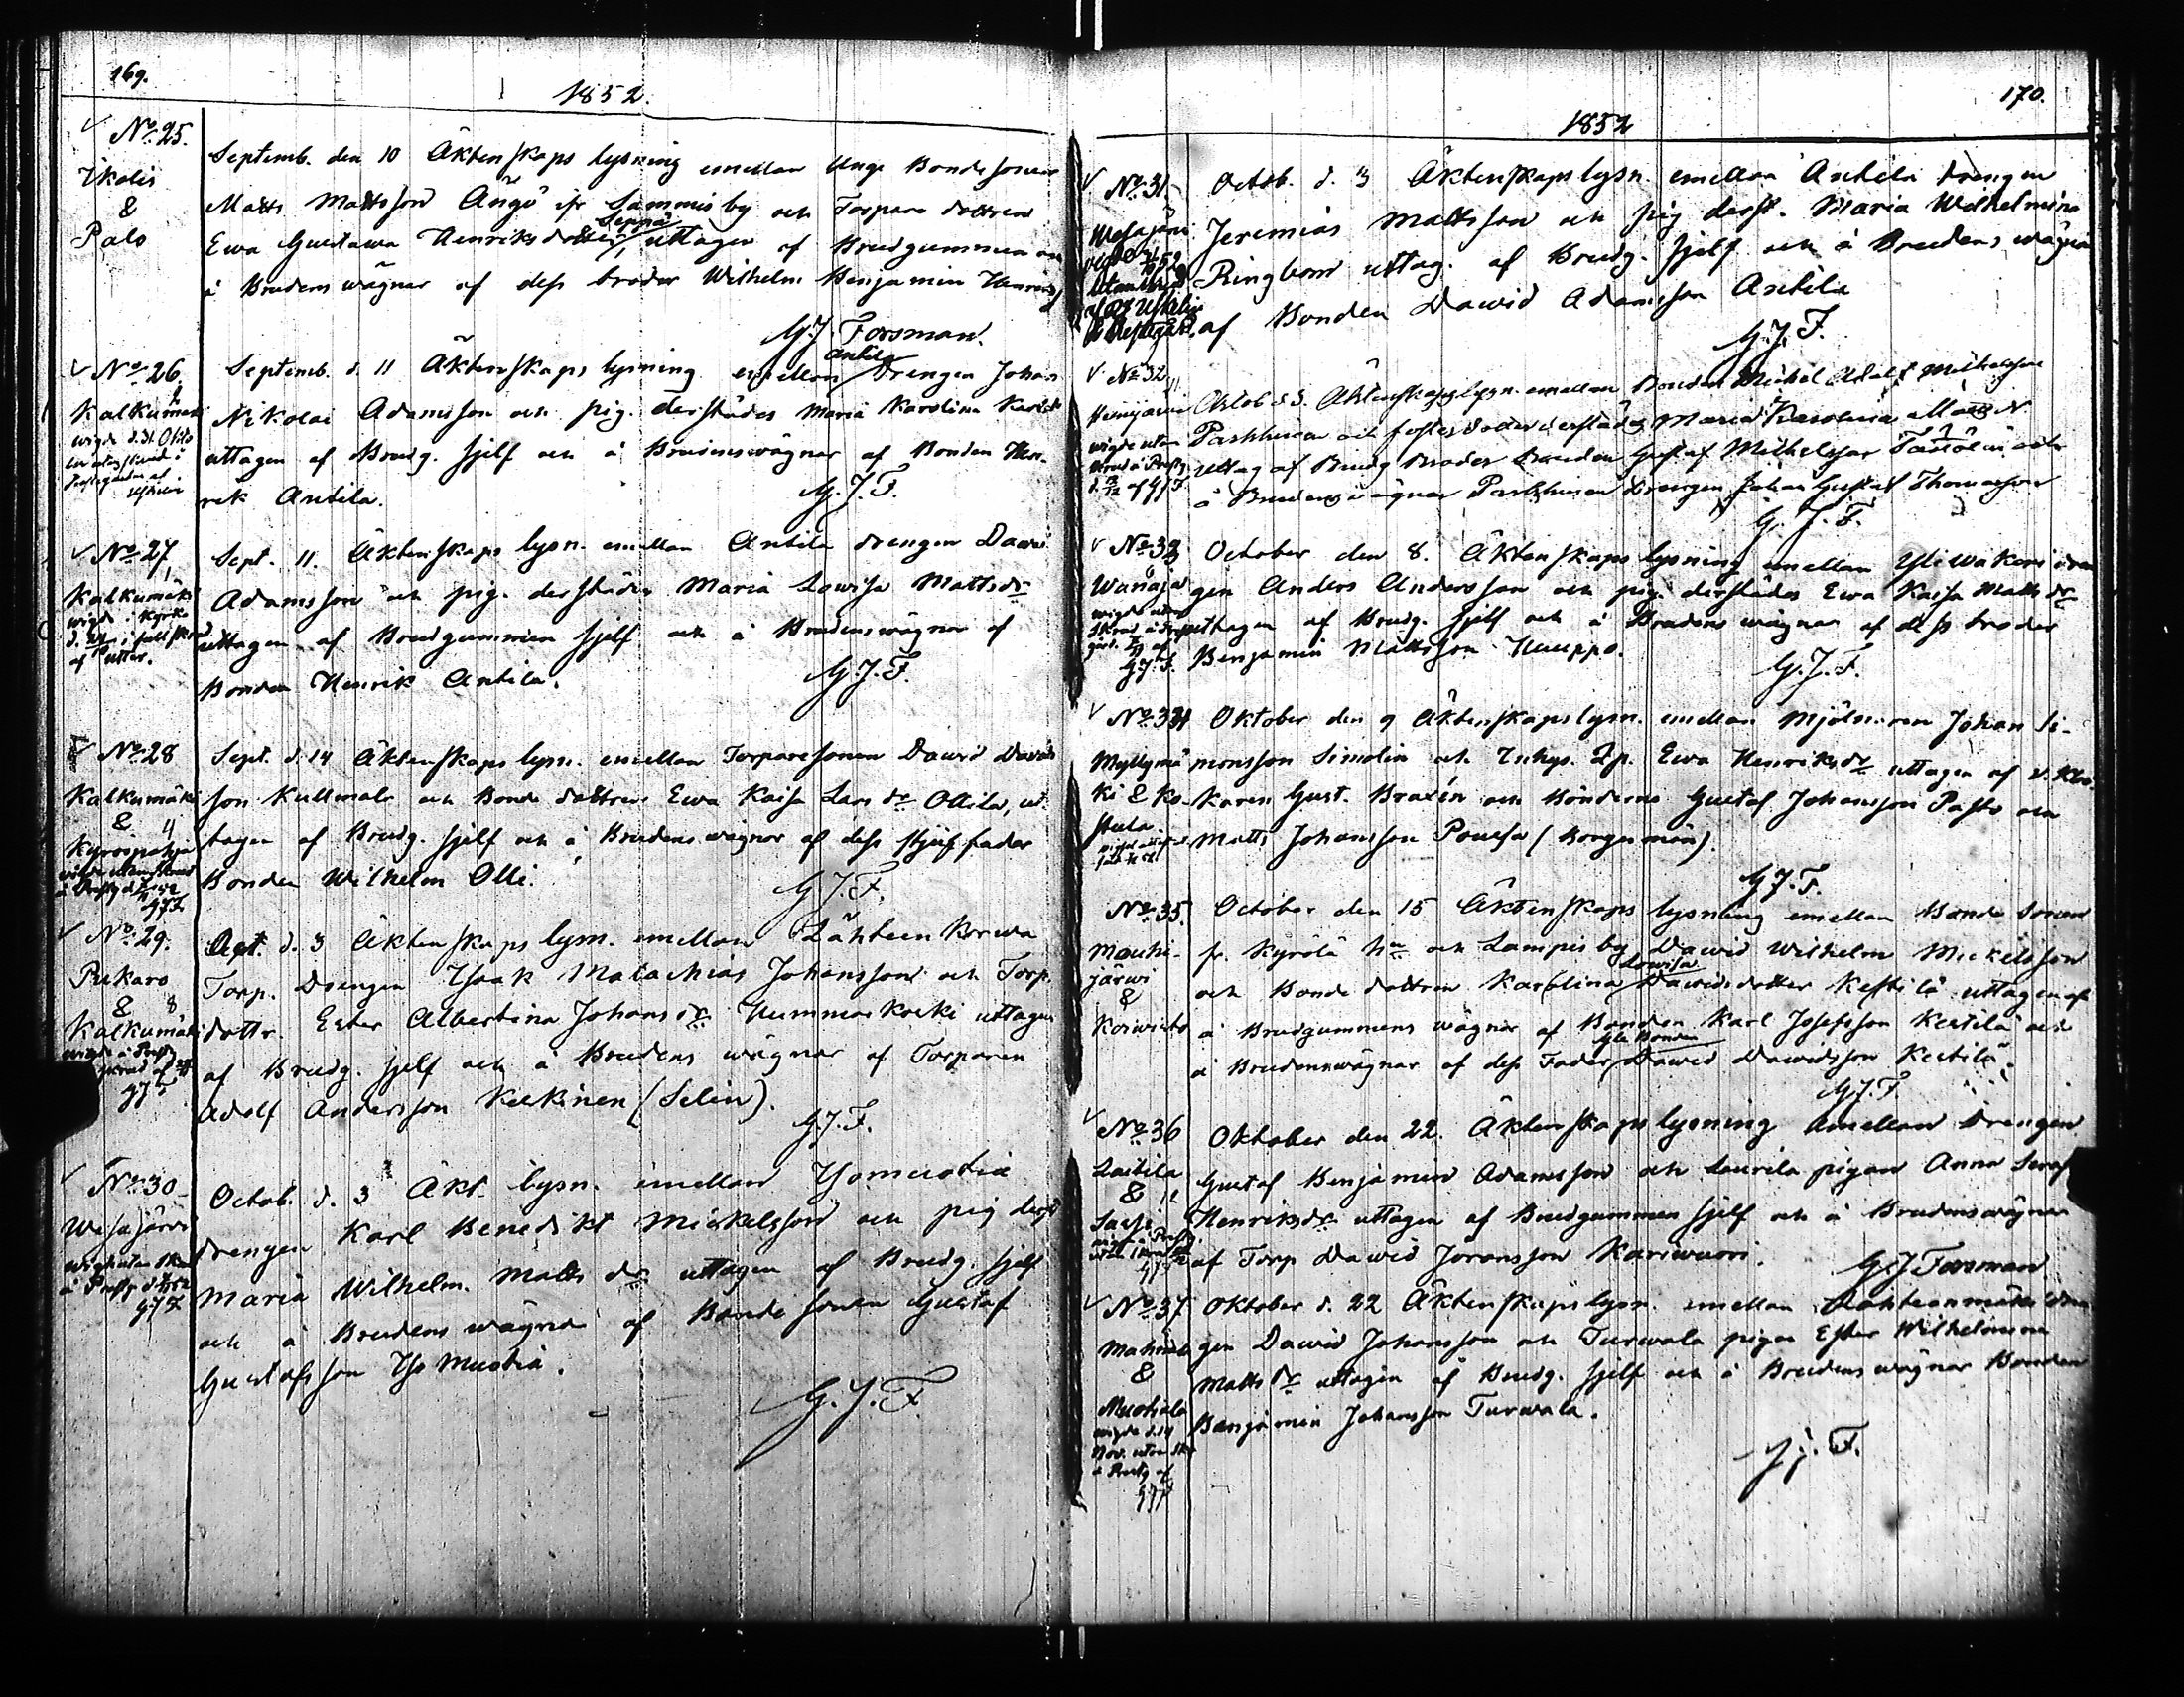 169.
1852.
No 25.
Ikalis
&
Palo
Septemb. den 10 Äktenskaps lysning emellan unge Bonde sonen
Matts Mattsson Ängö ifr Sammis by och Torpare dottren
Ewa Gustawa Henriksdotter Seppä uttagen af Brudgummen
å Brudens wägnar af dess broder Wilhelm Benjamin
G.J. Forsman.
No 26.
Kalkumäki
Septemb. d. 11 Äktenskaps lysning emellan Antila Drengen Johan
Nikolai Adamsson och pig. derstädes Maria Karolina
uttagen af Brudg. sjelf och å Brudenswägnar af Bonden Hen-
rik Antila.
G.J.F.
No 27
Kalkumäki
wigde i Kyrka
Sept. 11. Äktenskaps lysn. emellan Antila drengen Dawid
Adamsson och pig. derstädes Maria Lowisa Mattsdr
uttagen af Brudgummen sjelf och å Brudenswägnar af
Bonden Henrik Antila.
G.J.F.
No 28
Kalkumäki
&
Kyrospohja
Sept. d. 14 Äktenskaps lysn. emellan Torparesonen Dawid Davids
son Kullmala och Bonde dottren Ewa Kaisa Lars dr Ollila, ut
tagen af Brudg. sjelf och å Brudens wägnar af dess styffader
Bonden Wilhelm Olli.
G.J.F.
No 29.
Pukaro
&
Kalkumäki
Oct. d. 3 Äktenskaps lysn. emellan Lähteenkorwa
Torp. Drengen Isaak Malachias Johansson och Torp.
dottr. Ester Albertina Johans dr Nummenkoski uttagen
af Brudg. sjelf och å Brudens wägnar af Torparen
Adolf Andersson Keskinen (Selin).
G.J.F.
No 30
Wesajärwi
wigde utan
å Prestg
GJF
Octob. d. 3 Äkt. lysn. emellan Isomustia
drengen Karl Benedikt Mickelsson och pig derst
Maria Wilhelm. Matts dr uttagen af Brudg. sjelf
och å Brudens wägnar af Bonde sonen Gustaf
Gustafsson Iso Mustia.
G.J.F.
170.
1852
No 31
Wesajärwi
Octob. d. 3 Äktenskaps lysn. emellan Antila drengen
Jeremias Mattsson och pig derst. Maria Wilhelmina
Ringbom uttag. af Brudg. sjelf och å Brudens wägnar
af Bonden Dawid Adamsson Antila
G.J.F.
No 32
wigde utan
Oktob d 3. Äktenskaps lysn. emellan Bonden Mickel Adolf Michelsson
Paskhinen och fosterdotter derstädes Maria Karolina
uttag af Brudg Broder Bonden Gustaf Michelsson och
å Brudens wägnar Drengen Johan Gustaf Thomasson
G.J.F.
No 33
wigde utan
October den 8. Äktenskaps lysning emellan Yliwakeri dren
gen Anders Andersson och pig. derstädes Ewa Kaisa Matts dr
uttagen af Brudg. sjelf och å Brudens wägnar af dess broder
Benjamin Mattsson Kauppo.
G.J.F.
No 34
Myllymä
ki & Ko-
skela
Oktober den 9 Äktenskapslysn. emellan Mjölnaren Johan Si-
monsson Simolin och Inhys. Qp. Ewa Henriksdr uttagen af v. Kloc-
karen Gust. Braxén och Bönderne Gustaf Johansson Pasto och
Matts Johansson Pouesa (Borgesmän).
G.J.F.
No 35.
Mouhi-
järwi
&
Koiwisto
October den 15 Äktenskaps lysning emellan Bonde sonen
fr. Kyrölä och Lampis by Dawid Wilhelm Mickelsson
och Bonde dottren Karolina Lowisa Dawidsdotter Kestilä uttagen af
å Brudgummens wägnar af Bonden Karl Josefsson Kestilä och
å Brudenswägnar af dess Fader Gle Bonden Dawid Dawidsson Kestilä.
G.J.F.
No 36
Laitila
&
Sasi
Oktober den 22. Äktenskaps lysning Emellan Drengen
Gustaf Benjamin Adamsson och Laurila pigan Anna
Henriksdr uttagen af Brudgummen sjelf och å Brudens wägnar
af Torp Dawid Jöransson Kariwuori.
G.J. Forsman
No 37
Mahnala
&
Mustiala
wigde d. 14
Nov. utan
å Prestg af
GJF
Oktober d. 22 Äktenskaps lysn. emellan dren
gen Dawid Johansson och Turwala pigan Ester Wilhelmina
Matts dr uttagen af Brudg. sjelf och å Brudens wägnar Bonden
Benjamin Johansson Turwala.
G.J.F.